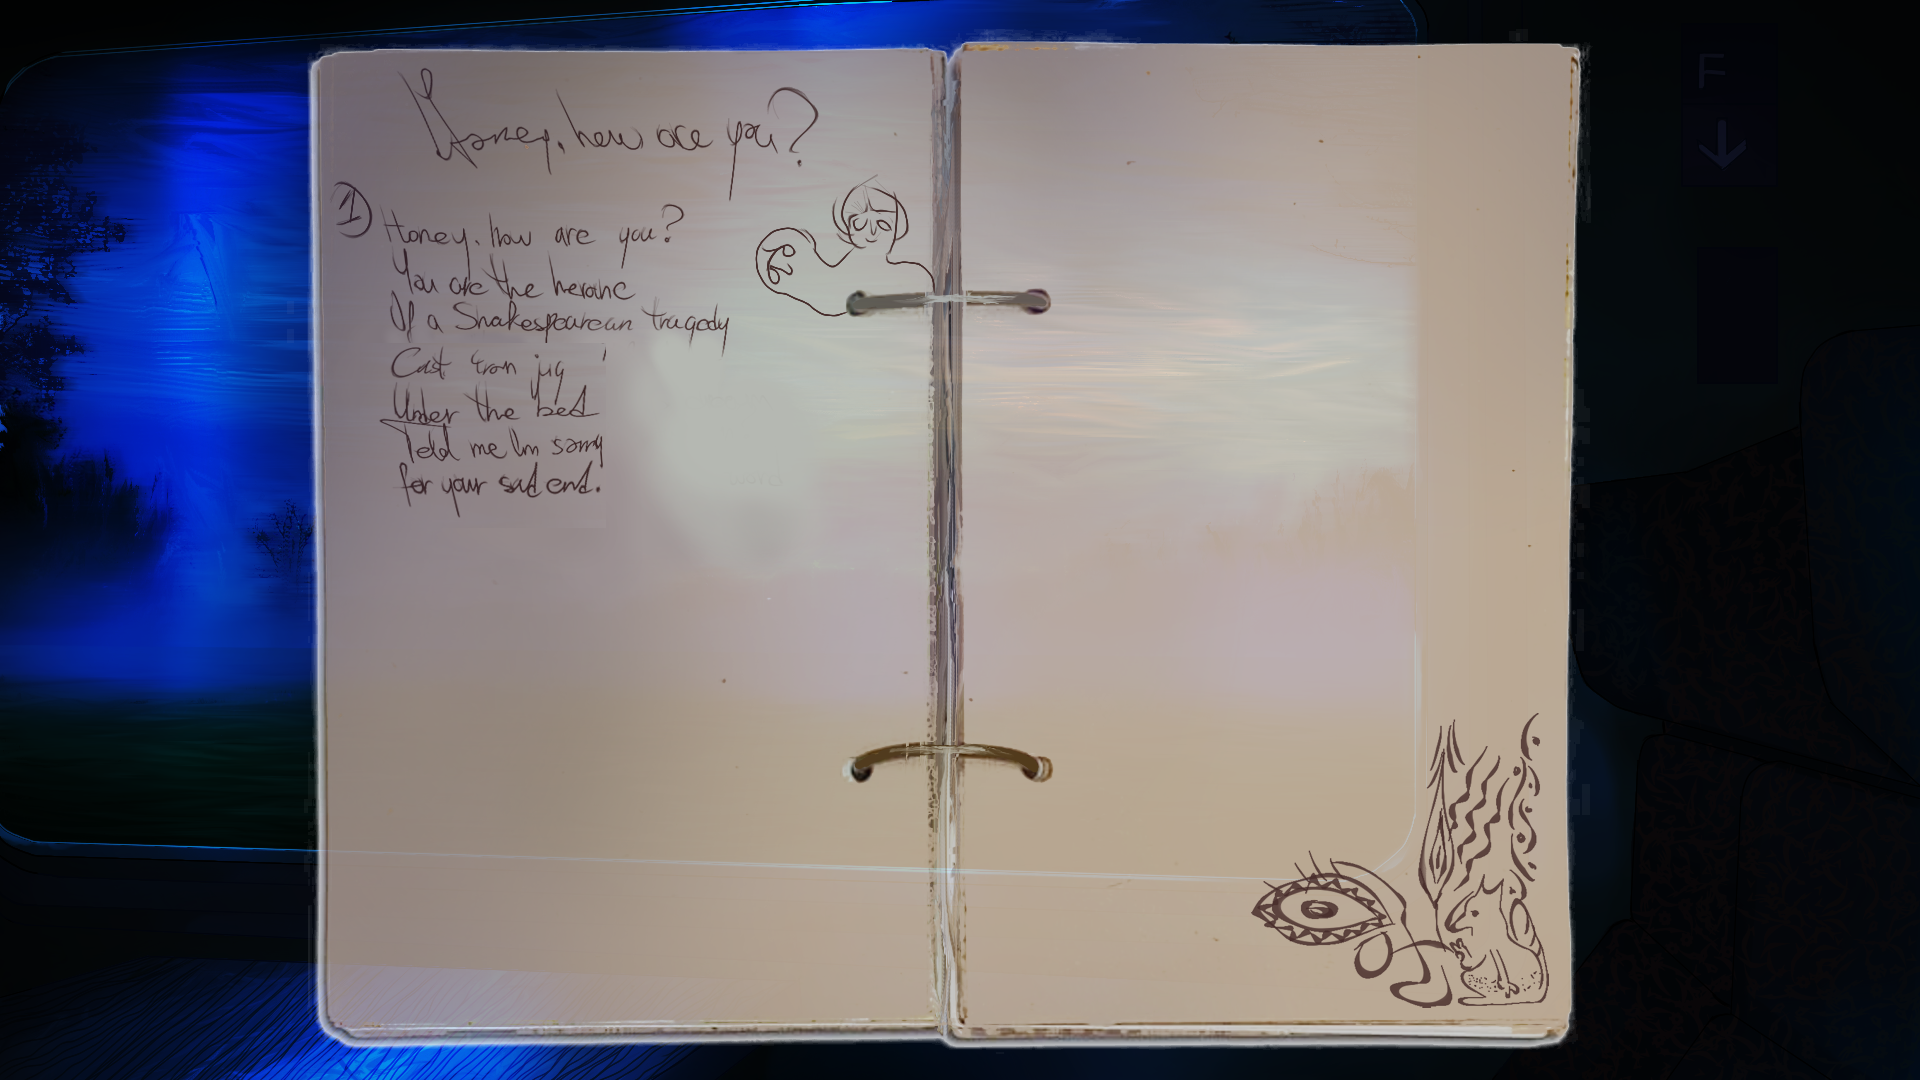 Honey, how are you?
1
Honey, how are you?
You are the heroine
Of a Shakespearean tragedy
Cast iron jug
Under the bed
Told me I'm sorry
for your sad end.
F